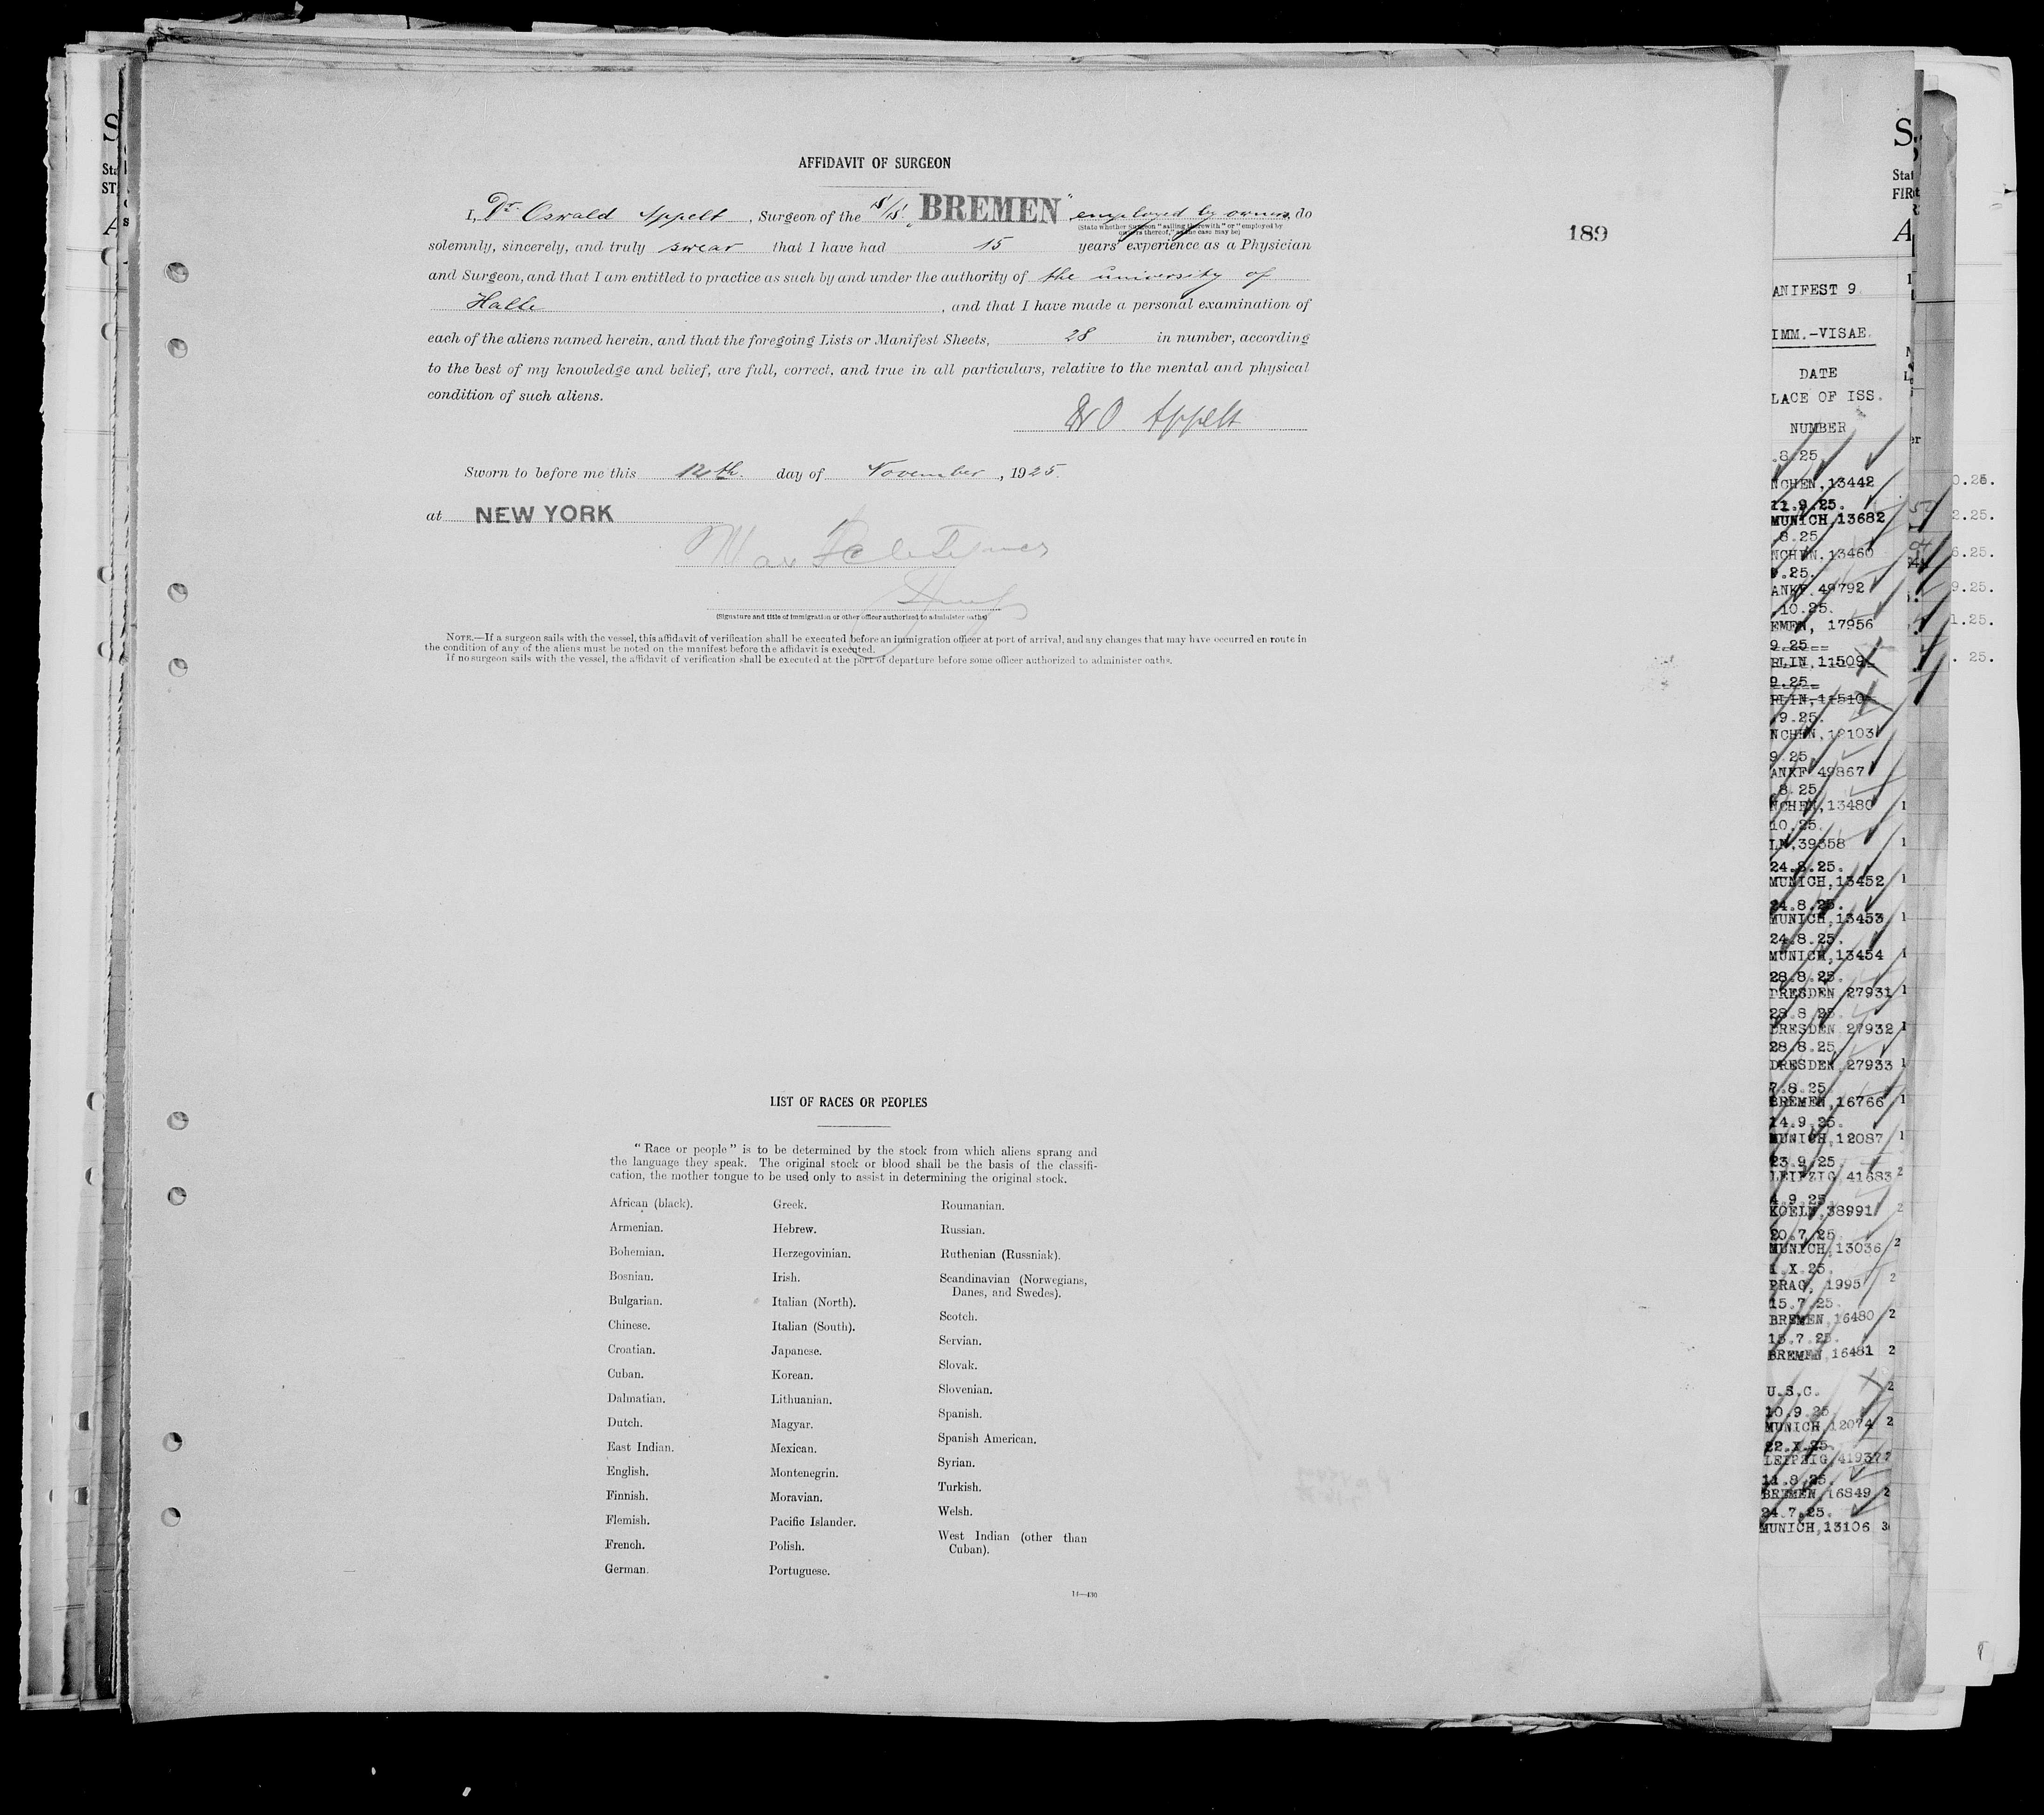 AFFIDAVIT OF SURGEON
I, Dr. Oswald Appelt, Surgeon of the S/S. "BREMEN" employed by owners, do
(State whether Surgeon "sailing therewith" or "employed by
owners thereof," as the case may be)
solemnly, sincerely, and truly swear that I have had 15 years' experience as a Physician
and Surgeon, and that I am entitled to practice as such by and under the authority of the university of
Halle, and that I have made a personal examination of
each of the aliens named herein, and that the foregoing Lists or Manifest Sheets, 28 in number, according
to the best of my knowledge and belief, are full, correct, and true in all particulars, relative to the mental and physical
condition of such aliens.
Dr O. Appelt
Sworn to before me this 12th. day of November, 1925.
at NEW YORK
Max
(Signature and title of immigration or other officer authorized to administer oaths)
NOTE.—If a surgeon sails with the vessel, this affidavit of verification shall be executed before an immigration officer at port of arrival, and any changes that may have occurred en route in
the condition of any of the aliens must be noted on the manifest before the affidavit is executed.
If no surgeon sails with the vessel, the affidavit of verification shall be executed at the port of departure before some officer authorized to administer oaths.
189
LIST OF RACES OR PEOPLES
"Race or people" is to be determined by the stock from which aliens sprang and
the language they speak. The original stock or blood shall be the basis of the classifi-
cation, the mother tongue to be used only to assist in determining the original stock.
African (black).
Armenian.
Bohemian.
Bosnian.
Bulgarian.
Chinese.
Croatian.
Cuban.
Dalmatian.
Dutch.
East Indian.
English.
Finnish.
Flemish.
French.
German.
Greek.
Hebrew.
Herzegovinian.
Irish.
Italian (North).
Italian (South).
Japanese.
Korean.
Lithuanian.
Magyar.
Mexican.
Montenegrin.
Moravian.
Pacific Islander.
Polish.
Portuguese.
Roumanian.
Russian.
Ruthenian (Russniak).
Scandinavian (Norwegians,
Danes, and Swedes).
Scotch.
Servian.
Slovak.
Slovenian.
Spanish.
Spanish American.
Syrian.
Turkish.
Welsh.
West Indian (other than
Cuban).
14—430
ANIFEST 9
IMM.-VISAE.
DATE
LACE OF ISS.
NUMBER
.8.25
NCHEN, 13442
11.9.25.
MUNICH, 13682
8.25
NCHEN, 13460
9.25.
ANKF 49792
.10.25.
EMEN, 17956
9.25
RLIN, 11509
9.25
RLIN, 11510
9.25.
NCHEN, 12103
9.25
ANKF 49867
8.25
NCHEN, 13480
10.25.
LN, 39358
24.8.25.
MUNICH, 13452
24.8.25.
MUNICH, 13453
24.8.25.
MUNICH, 13454
28.8.25.
DRESDEN 27931
28.8.25.
DRESDEN 27932
28.8.25.
DRESDEN 27933
7.8.25.
BREMEN, 16766
14.9.25.
MUNICH, 12087
23.9.25.
LEIPZIG 41683
4.9.25.
KOELN, 38991
20.7.25.
MUNICH, 13036
1.X.25.
PRAG, 1995
15.7.25.
BREMEN, 16480
15.7.25.
BREMEN, 16481
U.S.C.
10.9.25.
MUNICH, 12074
22.X.25.
LEIPZIG, 41937
11.8.25.
BREMEN, 16849
24.7.25.
MUNICH, 13106